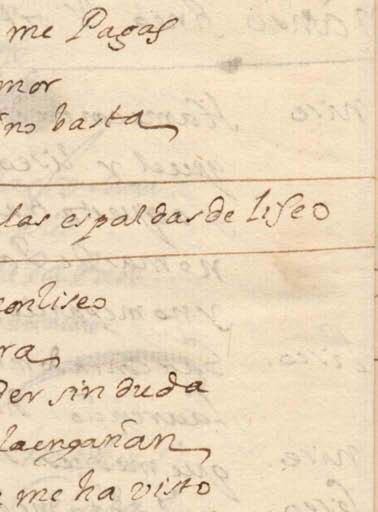 me Pagas
mor
no basta
las espaldas de liseo
con liseo
ra
der sin duda
la engañan
me ha visto